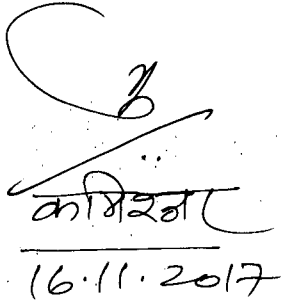 कमिश्नर
16.11.2017